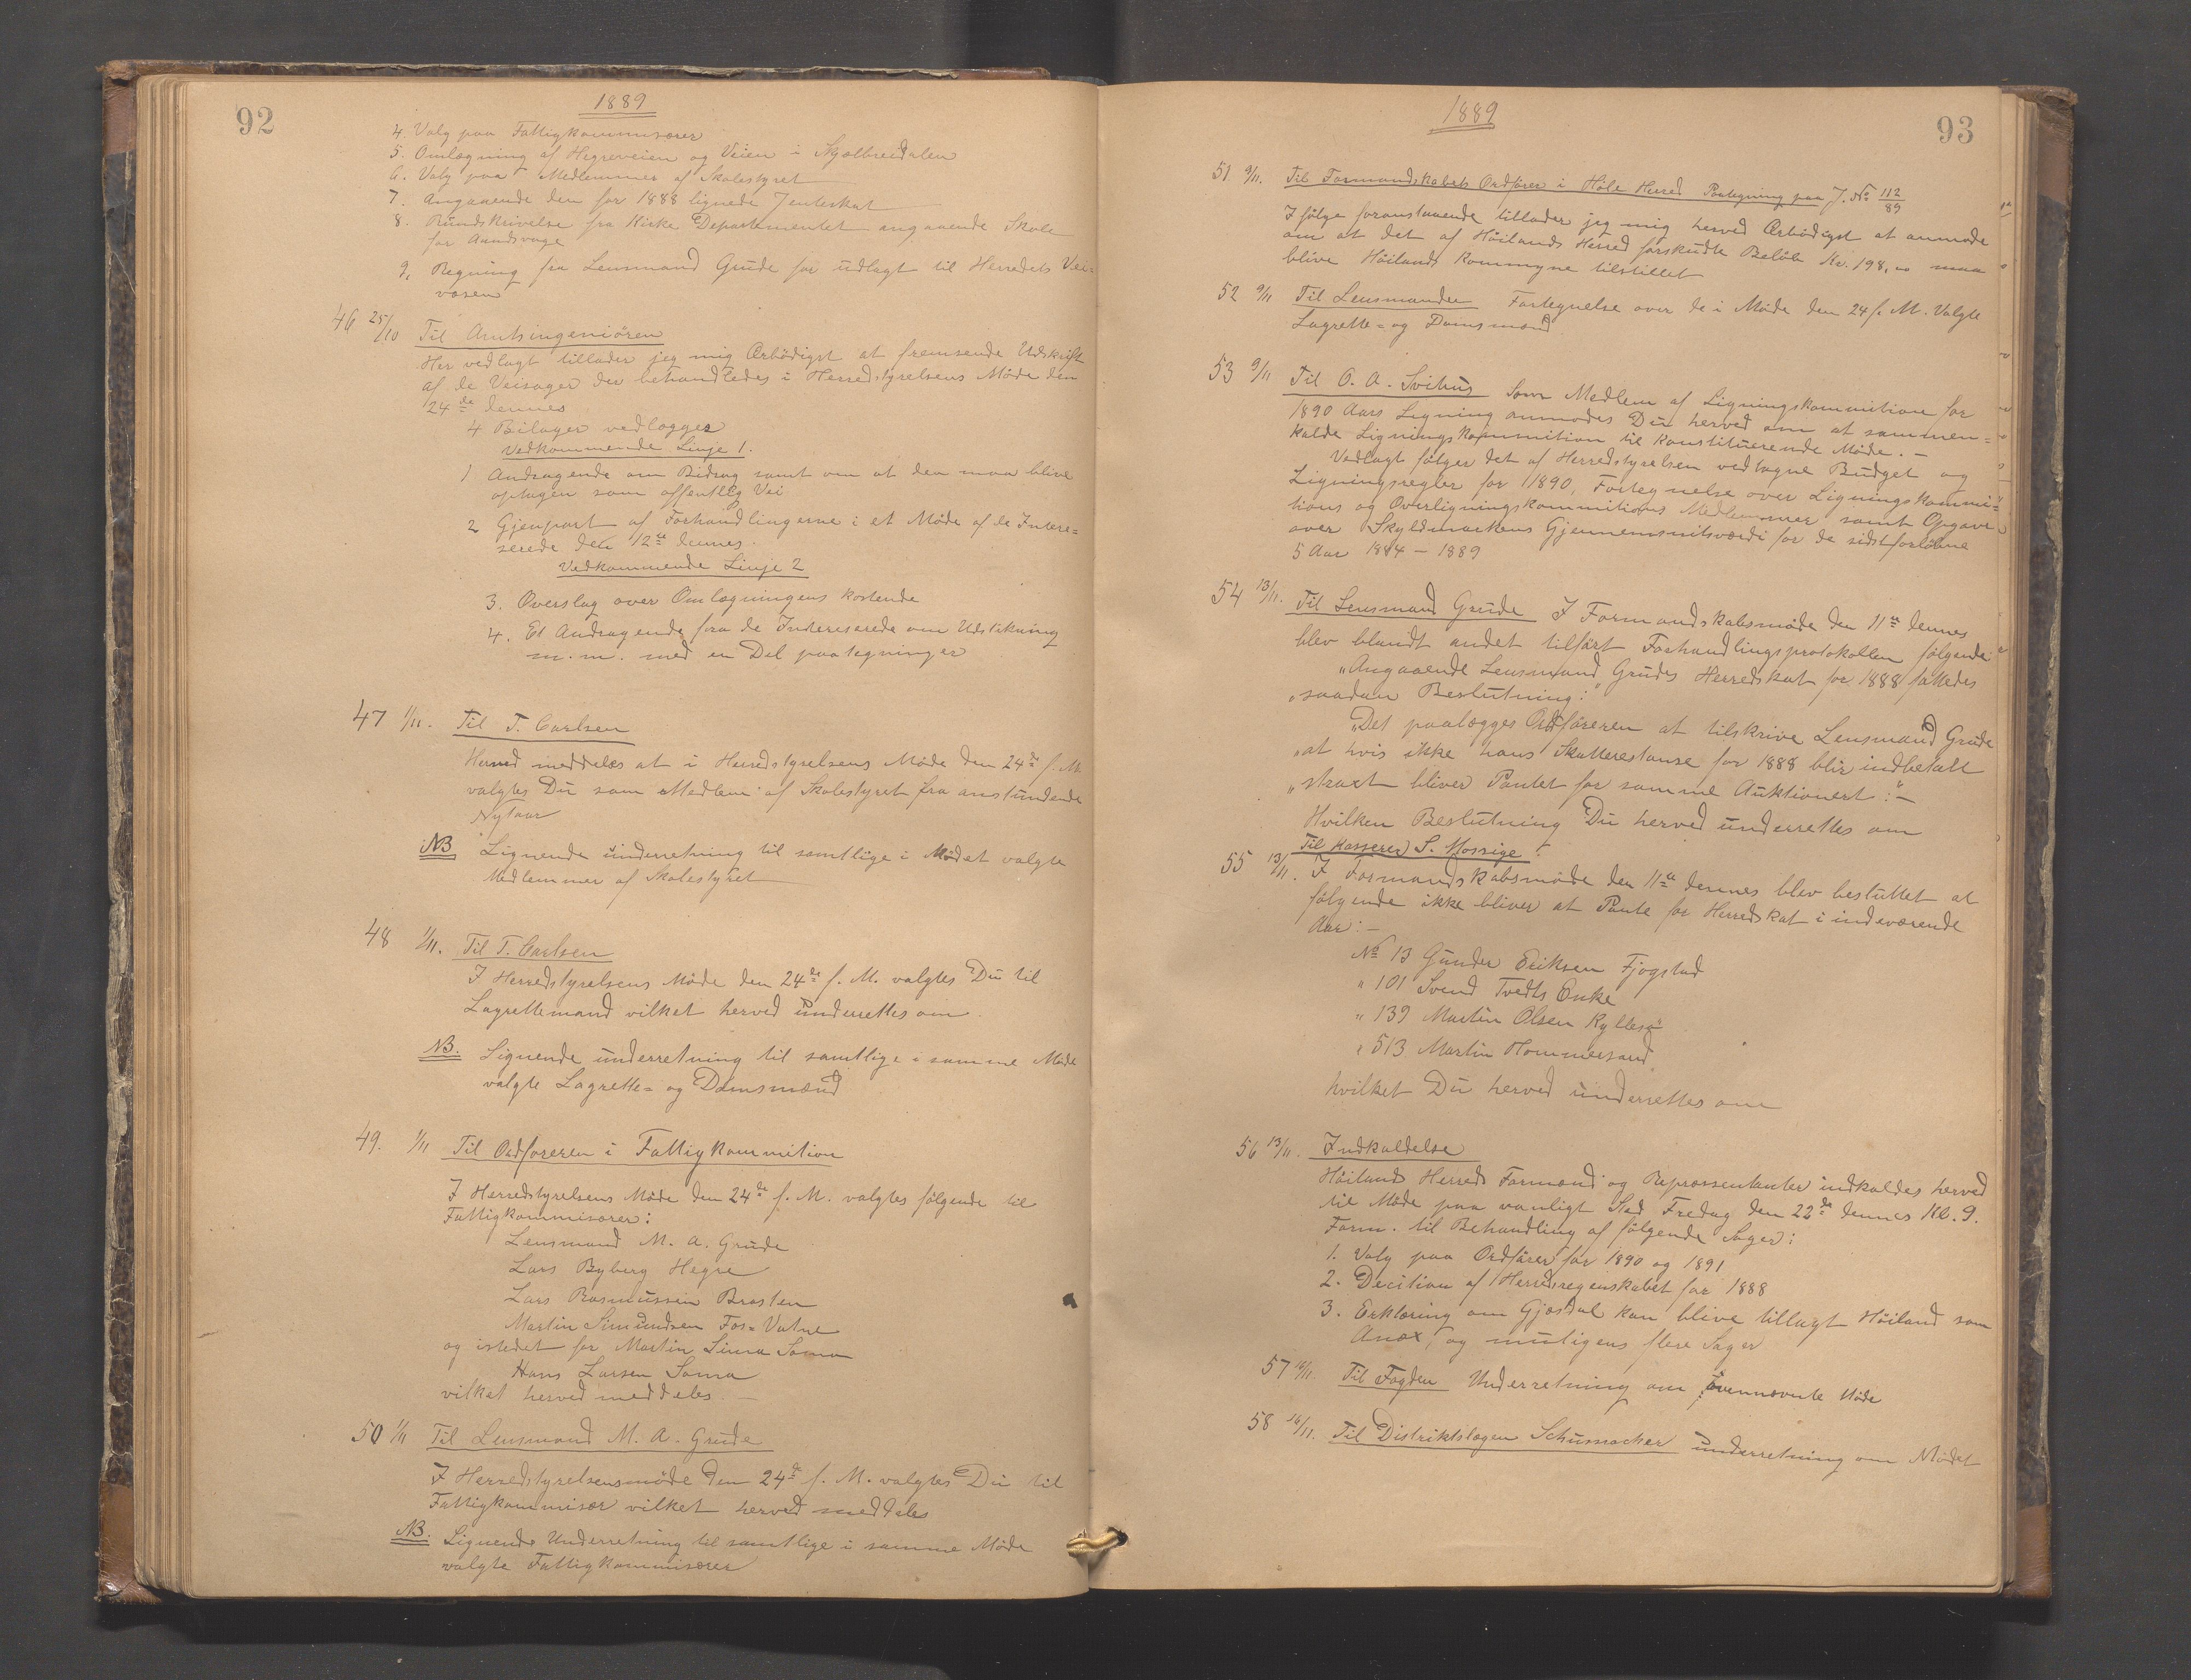 92
1889
4. Valg paa Fattigkommisærer
5. Omlægning af Hegreveien og Veien i Skjælbreidalen
6. Valg paa Medlemmer af Skolestyret
7. Angaaende den for 1888 lignede Jenteskat
8. Rundskrivelse fra Kirke Departementet angaaende Skole
for Aandsvage
9. Regning fra Lensmand Grude for udlagt til Herredets Vei=
væsen
46 25/10 Til Amtsingeniören
Her vedlagt tillader jeg mig Ærbödigst at fremsende Udskrift
af de Veisager der behandledes i Herredstyrelsens Möde den
24de dennes
4 Bilager vedlægges
Vedkommende Linje 1.
1 Andragende om Bidrag samt om at den maa blive
optagen som offentlig Vei
2 Gjenpart af Forhandlingerne i et Möde af de Intere=
serede den 12te dennes.
Vedkommende Linje 2
3. Overslag over Omlægningens kostende
4. Et Andragende fra de Intereserede om Udstikning
m.m. med en Del paategninger
47 1/11. Til T. Carlsen
Herved meddeles at i Herredstyrelsens Möde den 24de f. M.
valgtes Du som Medlem af Skolestyret fra anstundende
Nytaar
NB Lignende underretning til samtlige i Mödet valgte
Medlemmer af Skolestyret
48 1/11. Til T. Carlsen
I Herredstyrelsens Möde den 24de f. M. valgtes Du til
Lagrettemand vilket herved underrettes om
NB. Lignende underretning til samtlige i samme Möde
valgte Lagrette= og Domsmænd
49. 1/11 Til Ordföreren i Fattigkommition
I Herredstyrelsens Möde den 24de f. M. valgtes fölgende til
Fattigkommisærer:
Lensmand M. A. Grude
Lars Byberg Hegre
Lars Rasmussen Brasten
Martin Simundsen Fos=Vatne
og istedet for Martin Sima Soma
Hans Larsen Soma
vilket herved meddeles. —
50 1/11 Til Lensmand M. A. Grude
I Herredstyrelsensmöde den 24de f. M. valgtes Du til
Fattigkommisær vilket herved meddeles
NB. Lignende Underretning til samtlige i samme Möde
valgte Fattigkommisærer
1889
93
51 9/11. Til Formandskabets Ordförer i Höle Herred Paategning paa J. No 112/89
Ifölge foranstaaende tillader jeg mig herved Ærbödigst at anmode
om at det af Höilands Herred forskudte Belöb Kr. 198,00 maa
blive Höilands Kommyne tilstillet
52 9/11 Til Lensmanden Fortegnelse over de i Möde den 24 f. M. Valgte
Lagrette= og Domsmænd
53 9/11 Til O. A. Svihus Som Medlem af Ligningskommition for
1890 Aars Ligning anmodes Du herved om at sammen=
kalde Ligningskommition til konstituerende Möde. —
Vedlagt fölger det af Herredstyrelsen vedtagne Budget og
Ligningsregler for 1890, Fortegnelse over Ligningskommi=
tions og Overligningskommitions Medlemmer samt Opgave
over Skyldmarkens Gjennemsnitsværdi for de sidstforlöbne
5 Aar 1884 — 1889
54 13/11. Til Lensmand Grude I Formandskabsmöde den 11te dennes
blev blandt andet tilfört Forhandlingsprotokollen fölgende
„Angaaende Lensmand Grudes Herredskat for 1888 fattedes
„saadan Beslutning:"
„Det paalægges Ordföreren at tilskrive Lensmand Grude
„at hvis ikke hans Skatterestanse for 1888 blir indbetalt
„straxt bliver Pantet for samme Auktionert:" —
Hvilken Beslutning Du herved underrettes om
Til Kasserer S. Mossige
55 13/11. I Formandskabsmöde den 11te dennes blev besluttet at
fölgende ikke bliver at Pante for Herredskat i indeværende
Aar: —
No 13 Gunder Eriksen Fjogstad
" 101 Svend Tvedts Enke
" 139 Martin Olsen Kyllesö
" 513 Martin Hommersand
hvilket Du herved underrettes om
56 13/11. Indkaldelse
Höilands Herreds Formænd og Repræssentanter indkaldes herved
til Möde paa vanligt Sted Fredag den 22de dennes Kl. 9.
Form. til Behandling af fölgende Sager:
1. Valg paa Ordförer for 1890 og 1891
2. Decition af Herredsregenskabet for 1888
3. Erklæring om Gjæsdal kan blive tillagt Höiland som
Anæx, og muligens flere Sager
57 16/11. Til Fogden Underretning om ovennævnte Möde
58 16/11. Til Distriktslægen Schumacher underretning om Mödet